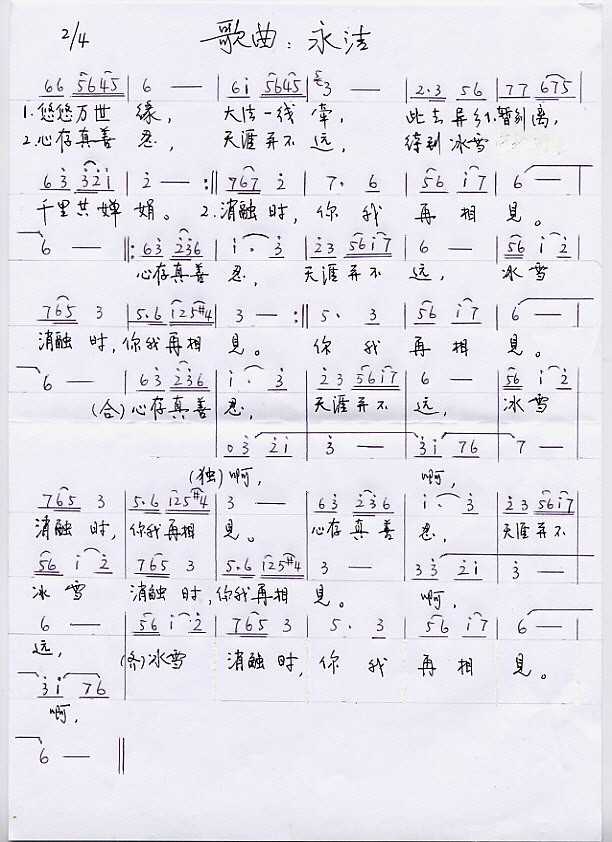 2/4 歌曲：永洁
66 5645 | 6 — | 6i 5645 | 3 — | 2·3 56 | 77 675 |
1.悠悠万世 缘， 大法一线 牵， 此去异乡1.暂别离，
2.心存真善 忍， 天涯并不 远， 待到 冰雪
63 321 | 2 — :|| 767 2 | 7· 6 | 56 i7 | 6 — |
千里共婵 娟。 2.消融时， 你 我 再 相 见。
6 — ||: 63 236 | i· 3 | 23 56i7 | 6 — | 56 i 2 |
心存真善 忍， 天涯并不 远， 冰雪
765 3 | 5·6 i25#4 | 3 — :|| 5· 3 | 56 i7 | 6 — |
消融 时，你我再相 见。 你 我 再 相 见。
6 — | 63 236 | i· 3 | 23 56i7 | 6 — | 56 i 2 |
(合)心存真善 忍， 天涯并不 远， 冰雪
03 2i | 3 — | 3i 76 | 7 — |
(独)啊， 啊，
765 3 | 5·6 i25#4 | 3 — | 63 236 | i· 3 | 23 56i7 |
消融 时，你我再相 见。 心存真善 忍， 天涯并不
56 i 2 | 765 3 | 5·6 i25#4 | 3 — | 33 2i | 3 — |
冰 雪 消融 时，你我再相 见。 啊，
6 — | 56 i· 2 | 765 3 | 5· 3 | 56 i7 | 6 — |
远， 冰雪 消融时， 你 我 再 相 见。
3i 76 |
啊，
6 — ||